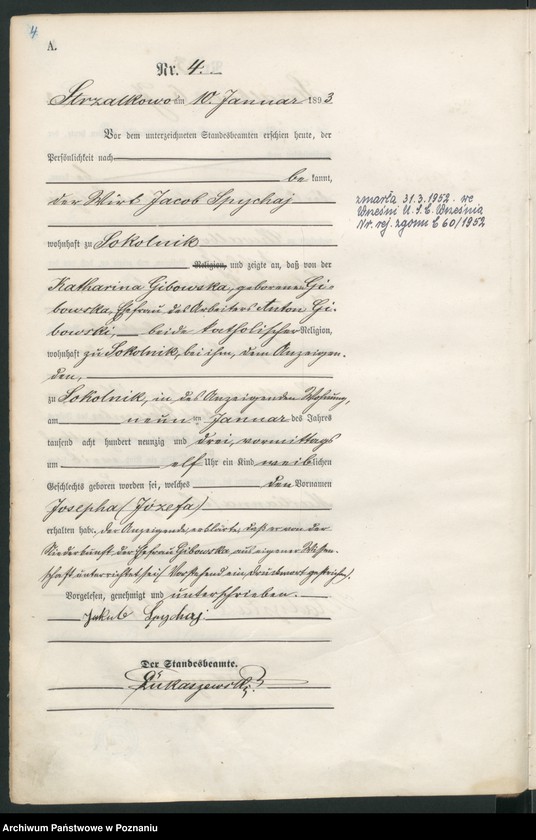 4
A.
Nr. 4.
Strzalkowo am 10. Januar 1893
Vor dem unterzeichneten Standesbeamten erschien heute, der
Persönlichkeit nach
be kannt,
der Wirt Jacob Spychaj
wohnhaft zu Sokolnik
Religion, und zeigte an, daß von der
Katharina Gibowska, geborenen Gi-
bowska, Ehefrau des Arbeiters Anton Gi-
bowski, beide katholischer Religion,
wohnhaft zu Sokolnik, bei ihm, dem Anzeigen-
den,
zu Sokolnik, in des Anzeigenden Wohnung,
am neun ten Januar des Jahres
tausend acht hundert neunzig und drei, vormittags
um elf Uhr ein Kind weiblichen
Geschlechts geboren worden sei, welches den Vornamen
Josepha (Józefa)
erhalten habe. Der Anzeigende erklärte, daß er von der
Niederkunft der Ehefrau Gibowska aus eigener Wissen-
schaft unterrichtet sei. Vorstehend ein Druckwort gestrichen.
Vorgelesen, genehmigt und unterschrieben.
Jakub Spychaj
Der Standesbeamte.
Łukaszewski
zmarła 31.3.1952 we
Wrześni U.S.C. Września
Nr. rej. zgonu 60/1952
Archiwum Państwowe w Poznaniu